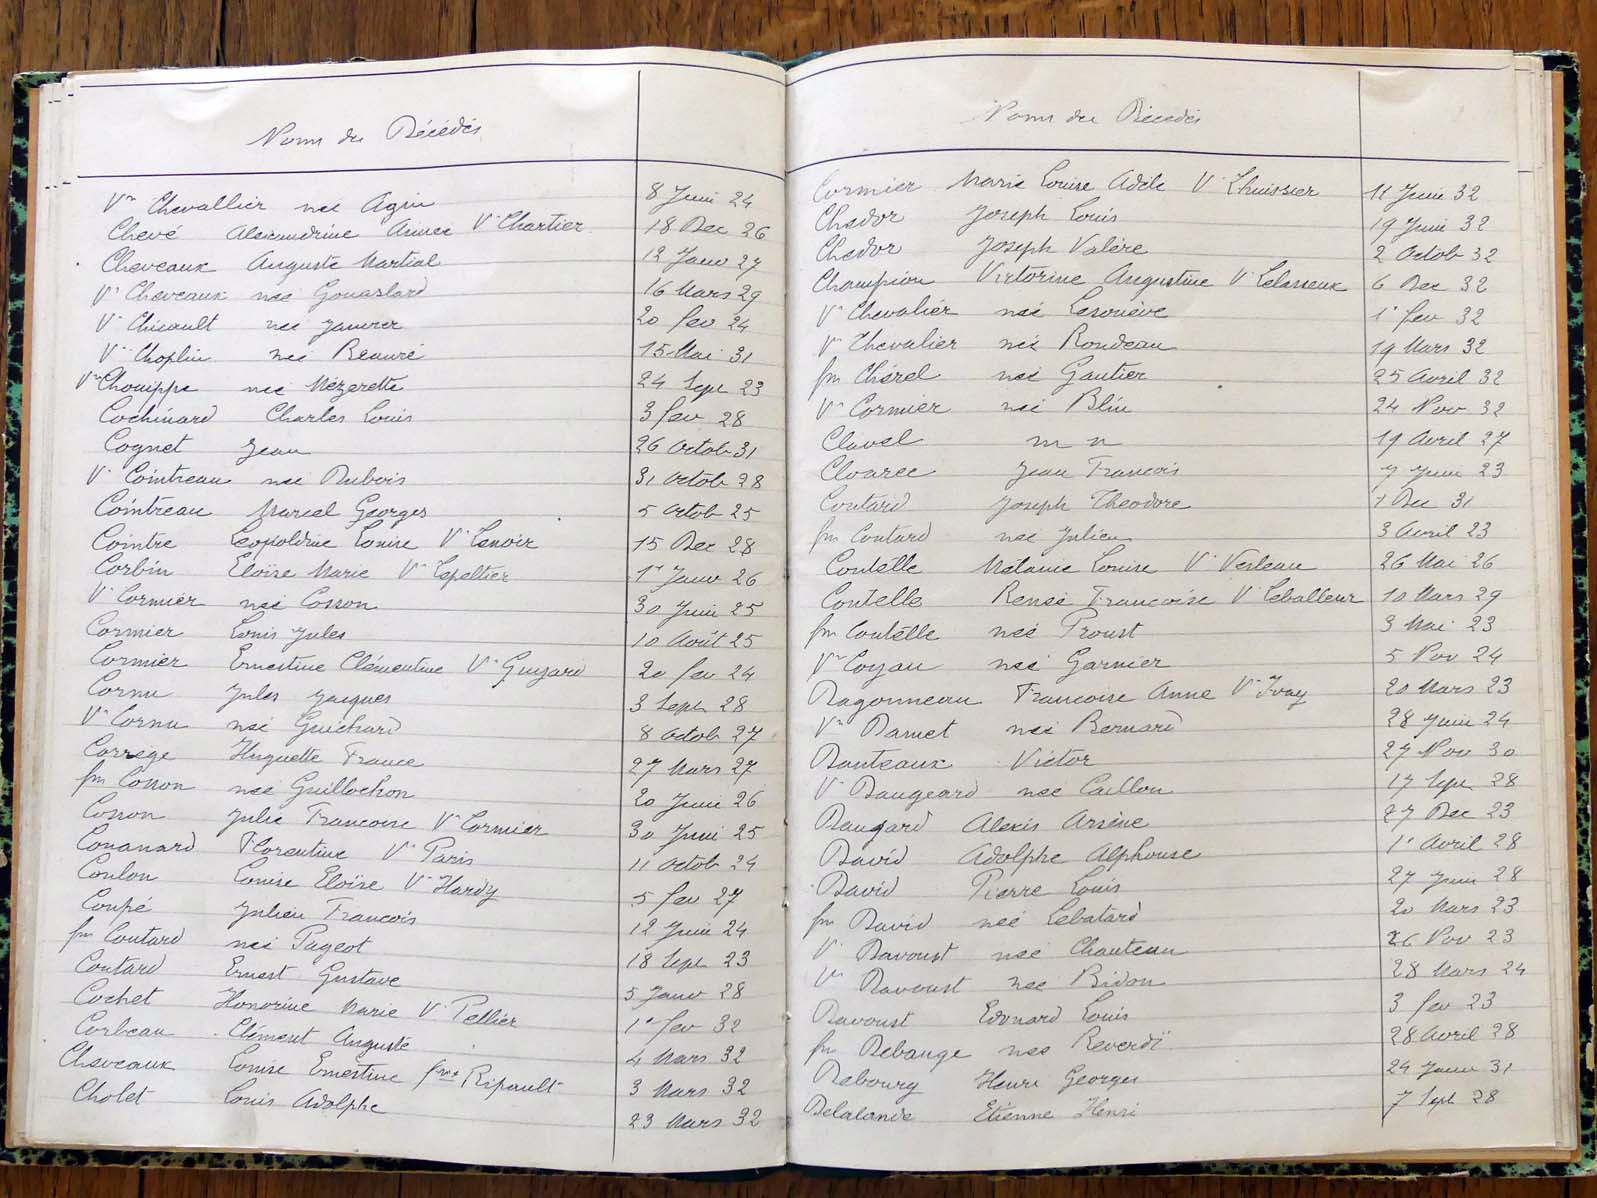 Noms des Décédés
Vve Chevallier née Agin 8 Juin 24
Chevé Alexandrine Aimée Vve Chartier 18 Dec 26
Cheveaux Auguste Martial 12 Janv 27
Vve Cheveaux née Gouaslard 16 Mars 29
Vve Chicault née Janvier 20 fev 24
Vve Choplin née Beauré 15 Mai 31
Vve Chouippe née Mézerette 24 Sept 23
Cochinard Charles Louis 3 fev 28
Cognet Jean 26 Octob 31
Vve Cointreau née Dubois 31 Octob 28
Cointreau Marcel Georges 5 Octob 25
Cointre Leopoldine Louise Vve Lenoir 15 Dec 28
Corbin Eloïse Marie Vve Lepeltier 1er Janv 26
Vve Cormier née Cosson 30 Juin 25
Cormier Louis Jules 10 Août 25
Cormier Ernestine Clémentine Vve Guyard 20 fev 24
Cornu Jules Jacques 3 Sept 28
Vve Cornu née Guichard 8 Octob 27
Corrège Huguette France 27 Mars 27
fm Cosson née Guillochon 20 Juin 26
Cosson Julie Francoise Vve Cormier 30 Juin 25
Couanard Florentine Vve Paris 11 Octob 24
Coulon Louise Eloïse Vve Hardy 5 fev 27
Coupé Julien Francois 12 Juin 24
fm Coutard née Pageot 18 Sept 23
Coutard Ernest Gustave 5 Janv 28
Cochet Honorine Marie Vve Pellier 1er fev 32
Corbeau Clément Auguste 4 Mars 32
Cheveaux Louise Ernestine fme Ripault 3 Mars 32
Cholet Louis Adolphe 23 Mars 32
Noms des Décédés
Cormier Marie Louise Adèle Vve Lhuissier 11 Juin 32
Chedor Joseph Louis 19 Juin 32
Chedor Joseph Valère 2 Octob 32
Champion Victorine Augustine Vve Lelasseux 6 Dec 32
Vve Chevalier née 1er fev 32
Vve Chevalier née Rondeau 19 Mars 32
fm Chérel née Gautier 25 Avril 32
Vve Cormier née Blin 24 Nov 32
Clavel m n 19 Avril 27
Cloarec Jean Francois 7 Juin 23
Coutard Joseph Theodore 1 Dec 31
fm Coutard née Julien 3 Avril 23
Coutelle Mélanie Louise Vve Verleau 26 Mai 26
Coutelle Renée Francoise Vve Leballeur 10 Mars 29
fm Coutelle née Proust 3 Mai 23
Vve Coyau née Garnier 5 Nov 24
Dagonneau Francoise Anne Vve Ivay 20 Mars 23
Vve Damet née Bernard 28 Juin 24
Dauteaux Victor 27 Nov 30
Vve Daugeard née Caillou 17 Sept 28
Daugard Alexis Arsène 27 Dec 23
David Adolphe Alphonse 1er Avril 28
David Pierre Louis 27 Juin 28
fm David née Lebatard 20 Mars 23
Vve Davoust née Chauteau 26 Nov 23
Vve Davoust née Bidon 28 Mars 24
Davoust Edouard Louis 3 fev 23
fm Debauge née Reverdi 28 Avril 28
Debourg Henri Georges 24 Janv 31
Delalande Etienne Henri 7 Sept 28